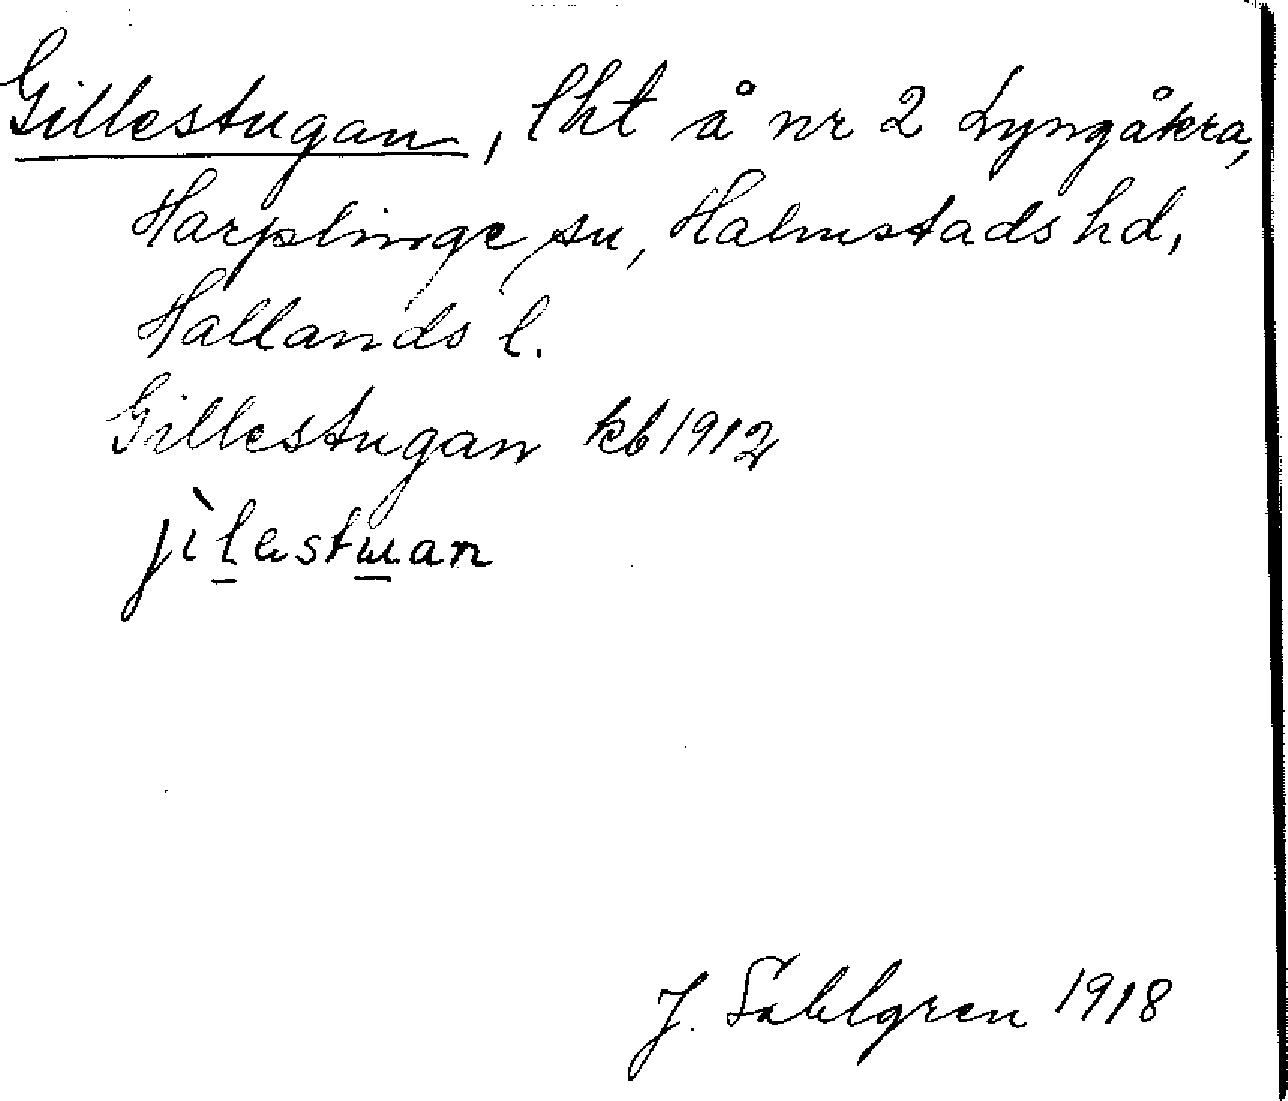 Gillestugan, lht å nr 2 Lyngåkra,
Harplinge sn, Halmstads hd,
Hallands l.
Gillestugan kb 1912
J. Sahlgren 1918